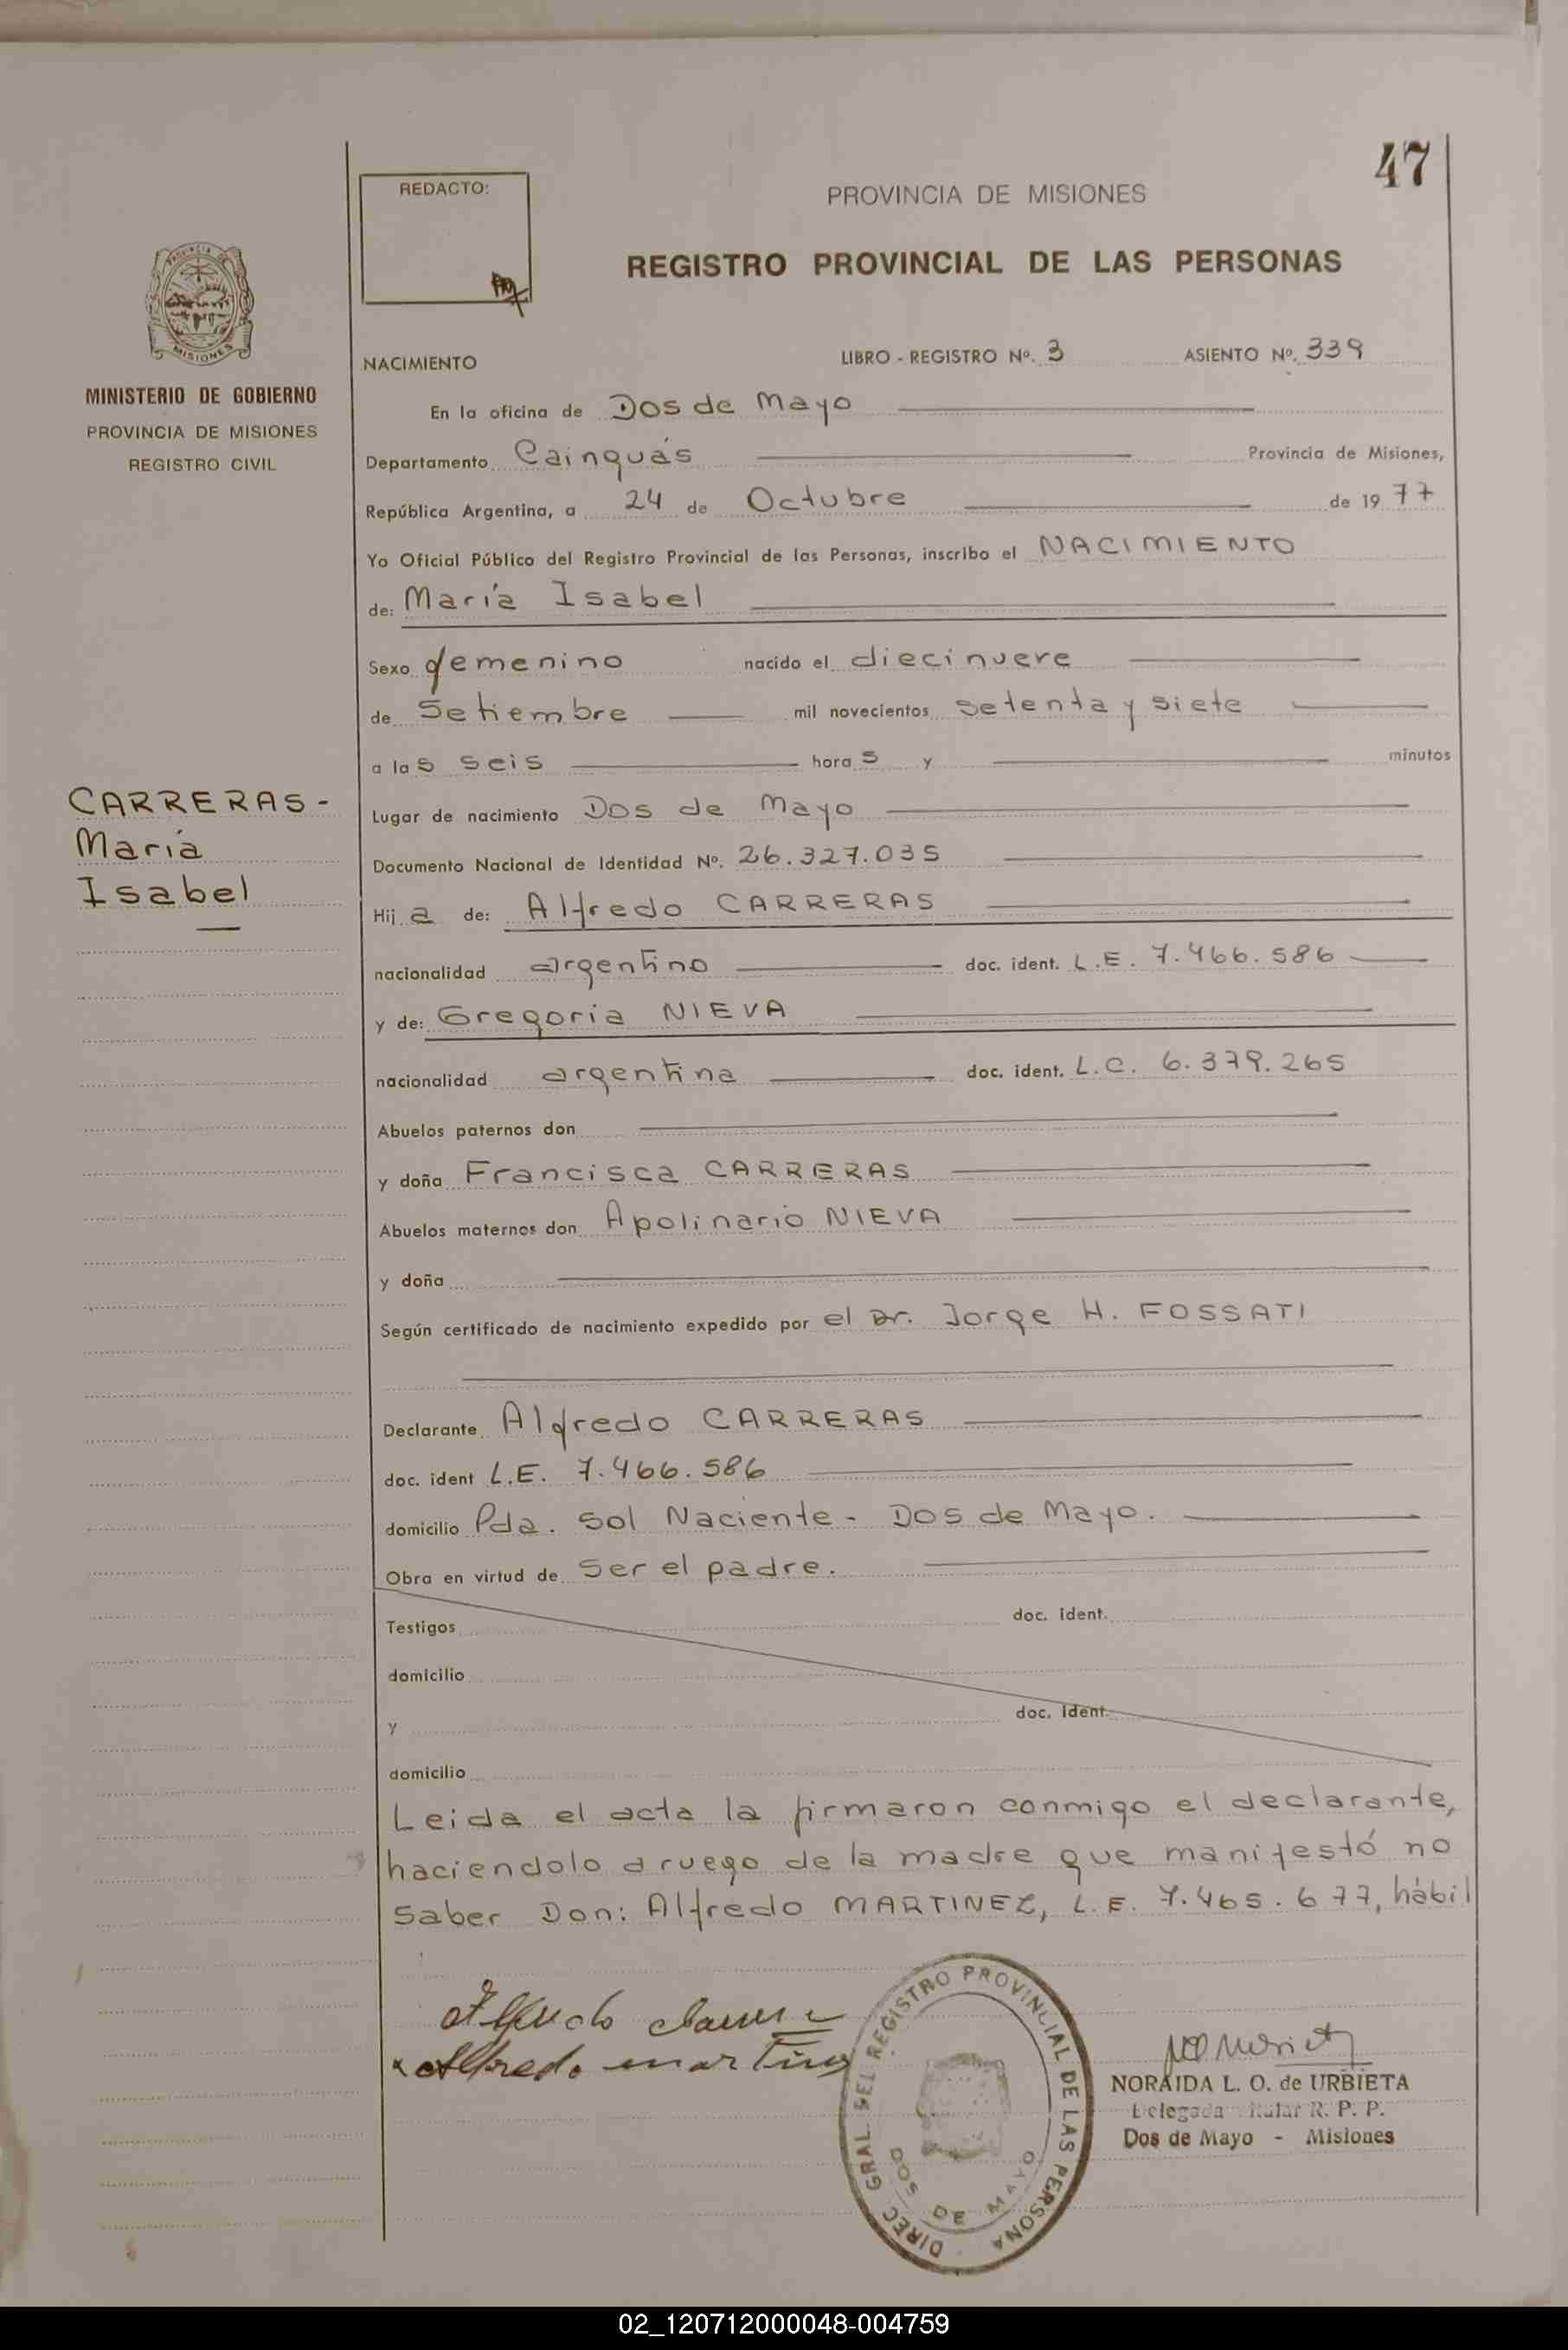 47
REDACTO:
PROVINCIA DE MISIONES
REGISTRO PROVINCIAL DE LAS PERSONAS
MISIONES
MINISTERIO DE GOBIERNO
PROVINCIA DE MISIONES
REGISTRO CIVIL
CARRERAS-
María
Isabel
NACIMIENTO LIBRO - REGISTRO Nº. 3 ASIENTO Nº. 339
En la oficina de Dos de Mayo
Departamento Cainguás Provincia de Misiones,
República Argentina, a 24 de Octubre de 1977
Yo Oficial Público del Registro Provincial de las Personas, inscribo el NACIMIENTO
de: María Isabel
Sexo femenino nacido el diecinueve
de Setiembre mil novecientos setenta y siete
a las seis horas y minutos
Lugar de nacimiento Dos de Mayo
Documento Nacional de Identidad Nº. 26.327.035
Hija de: Alfredo CARRERAS
nacionalidad argentino doc. ident. L.E. 7.466.586
y de: Gregoria NIEVA
nacionalidad argentina doc. ident. L.C. 6.379.265
Abuelos paternos don
y doña Francisca CARRERAS
Abuelos maternos don Apolinario NIEVA
y doña
Según certificado de nacimiento expedido por el Dr. Jorge H. FOSSATI
Declarante Alfredo CARRERAS
doc. ident L.E. 7.466.586
domicilio Pda. Sol Naciente - Dos de Mayo.
Obra en virtud de ser el padre.
Testigos doc. ident.
domicilio
y doc. ident.
domicilio
Leida el acta la firmaron conmigo el declarante,
haciendolo a ruego de la madre que manifestó no
saber Don: Alfredo MARTINEZ, L.E. 7.465.677, hábil
Alfredo
Alfredo
DIREC GRAL. DEL REGISTRO PROVINCIAL DE LAS PERSONA
DOS DE MAYO
NORAIDA L. O. de URBIETA
Delegada Titular R. P. P.
Dos de Mayo - Misiones
02_120712000048-004759